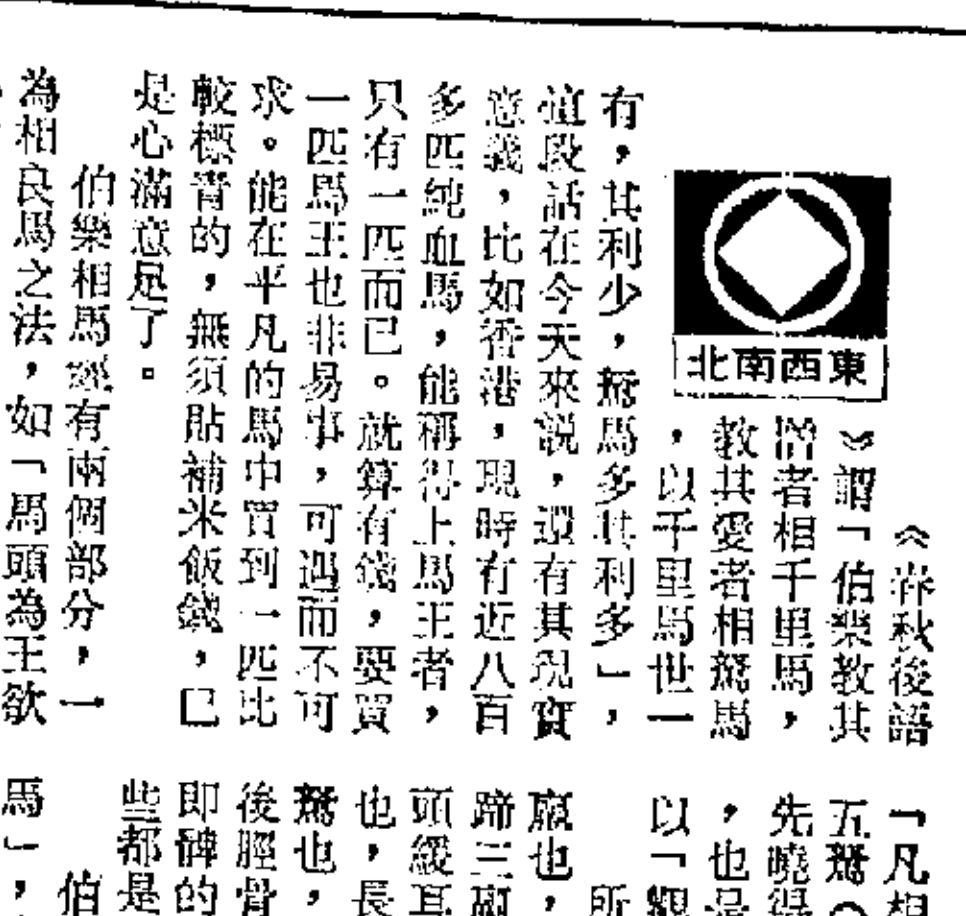 東西南北
《春秋後語
》謂「伯樂教其
憎者相千里馬，
教其愛者相駑馬
，以千里馬世一
有，其利少，駑馬多其利多」，
這段話在今天來說，還有其現實
意義，比如香港，現時有近八百
多匹純血馬，能稱得上馬王者，
只有一匹而已。就算有錢，要買
一匹馬王也非易事，可遇而不可
求。能在平凡的馬中買到一匹比
較標青的，無須貼補米飯錢，已
是心滿意足了。
伯樂相馬經有兩個部分，一
為相良馬之法，如「馬頭為王欲
「凡相
五駑
先曉得
，也是
以「觀
所
也，
蹄三
頭緩耳
也，長
駑也，
後脛骨
即髀的
些都是
伯
馬」，